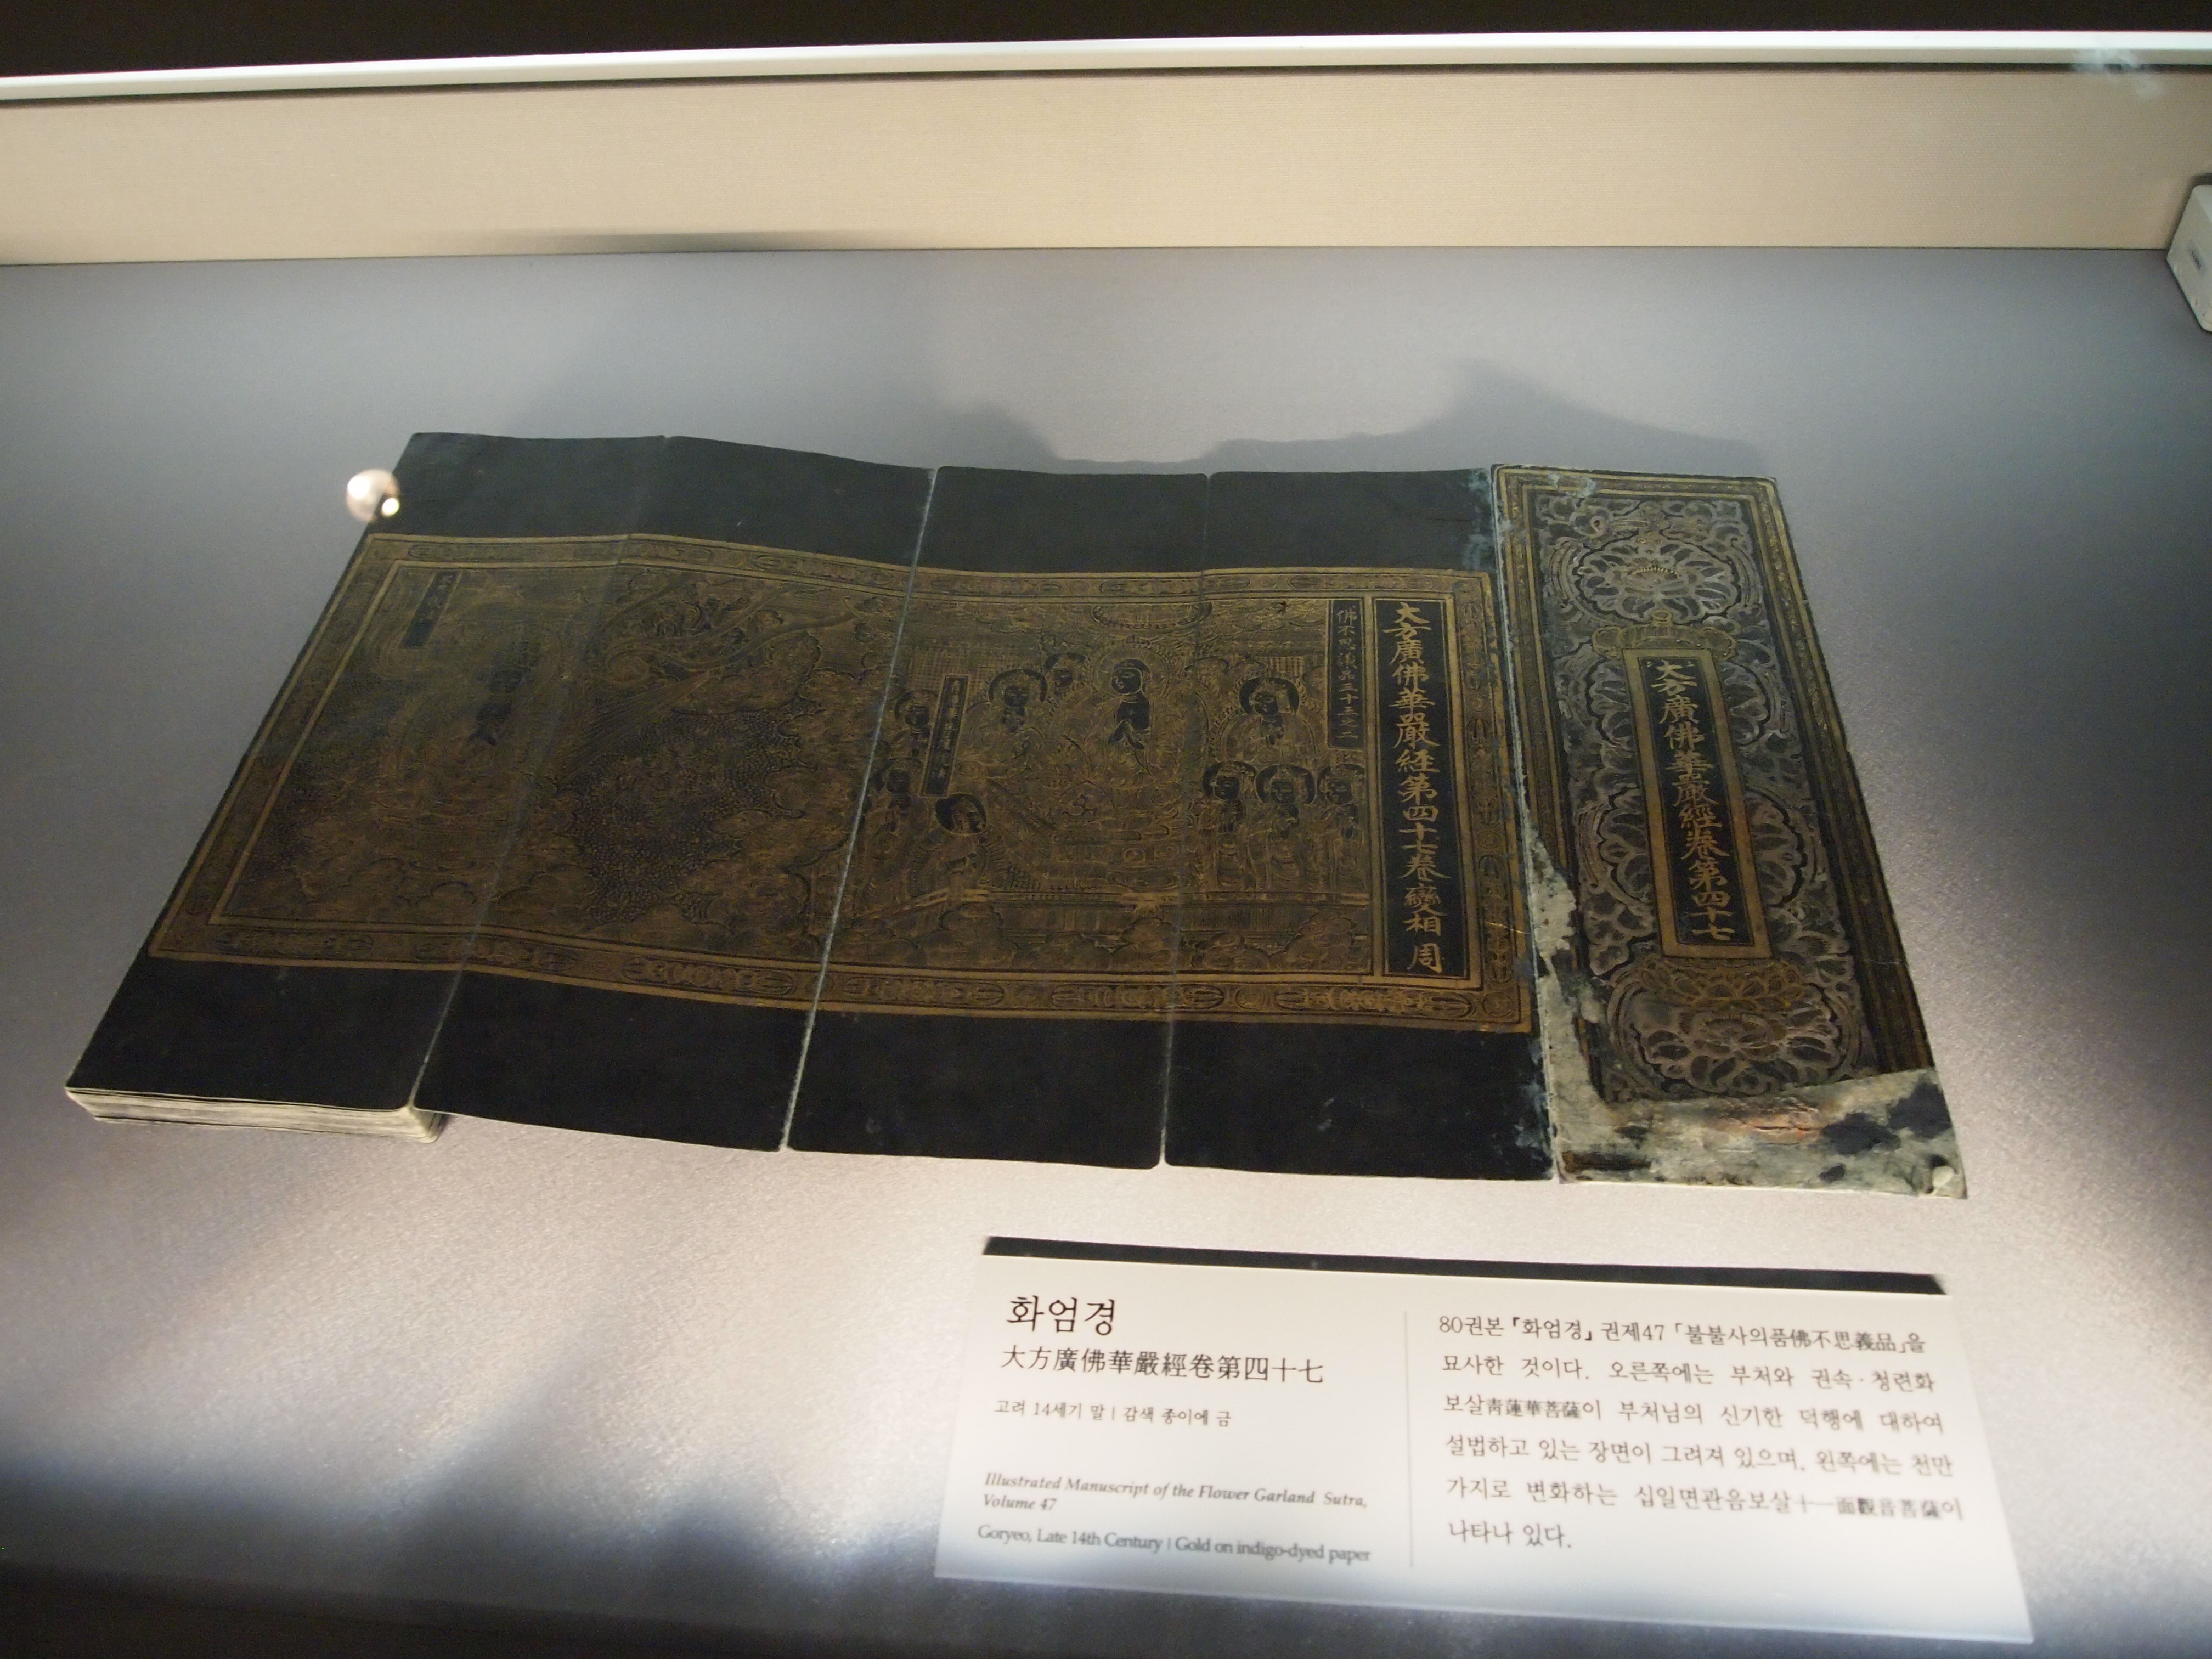 大方廣佛華嚴經卷第四十七
大方廣佛華嚴經第四十七卷變相 周
佛不思議品三十三之二
화엄경
大方廣佛華嚴經卷第四十七
고려 14세기 말 | 감색 종이에 금
Illustrated Manuscript of the Flower Garland Sutra,
Volume 47
Goryeo, Late 14th Century | Gold on indigo-dyed paper
80권본『화엄경』권제47「불불사의품佛不思義品」을
묘사한 것이다. 오른쪽에는 부처와 권속·청련화
보살靑蓮華菩薩이 부처님의 신기한 덕행에 대하여
설법하고 있는 장면이 그려져 있으며, 왼쪽에는 천만
가지로 변화하는 십일면관음보살十一面觀音菩薩이
나타나 있다.